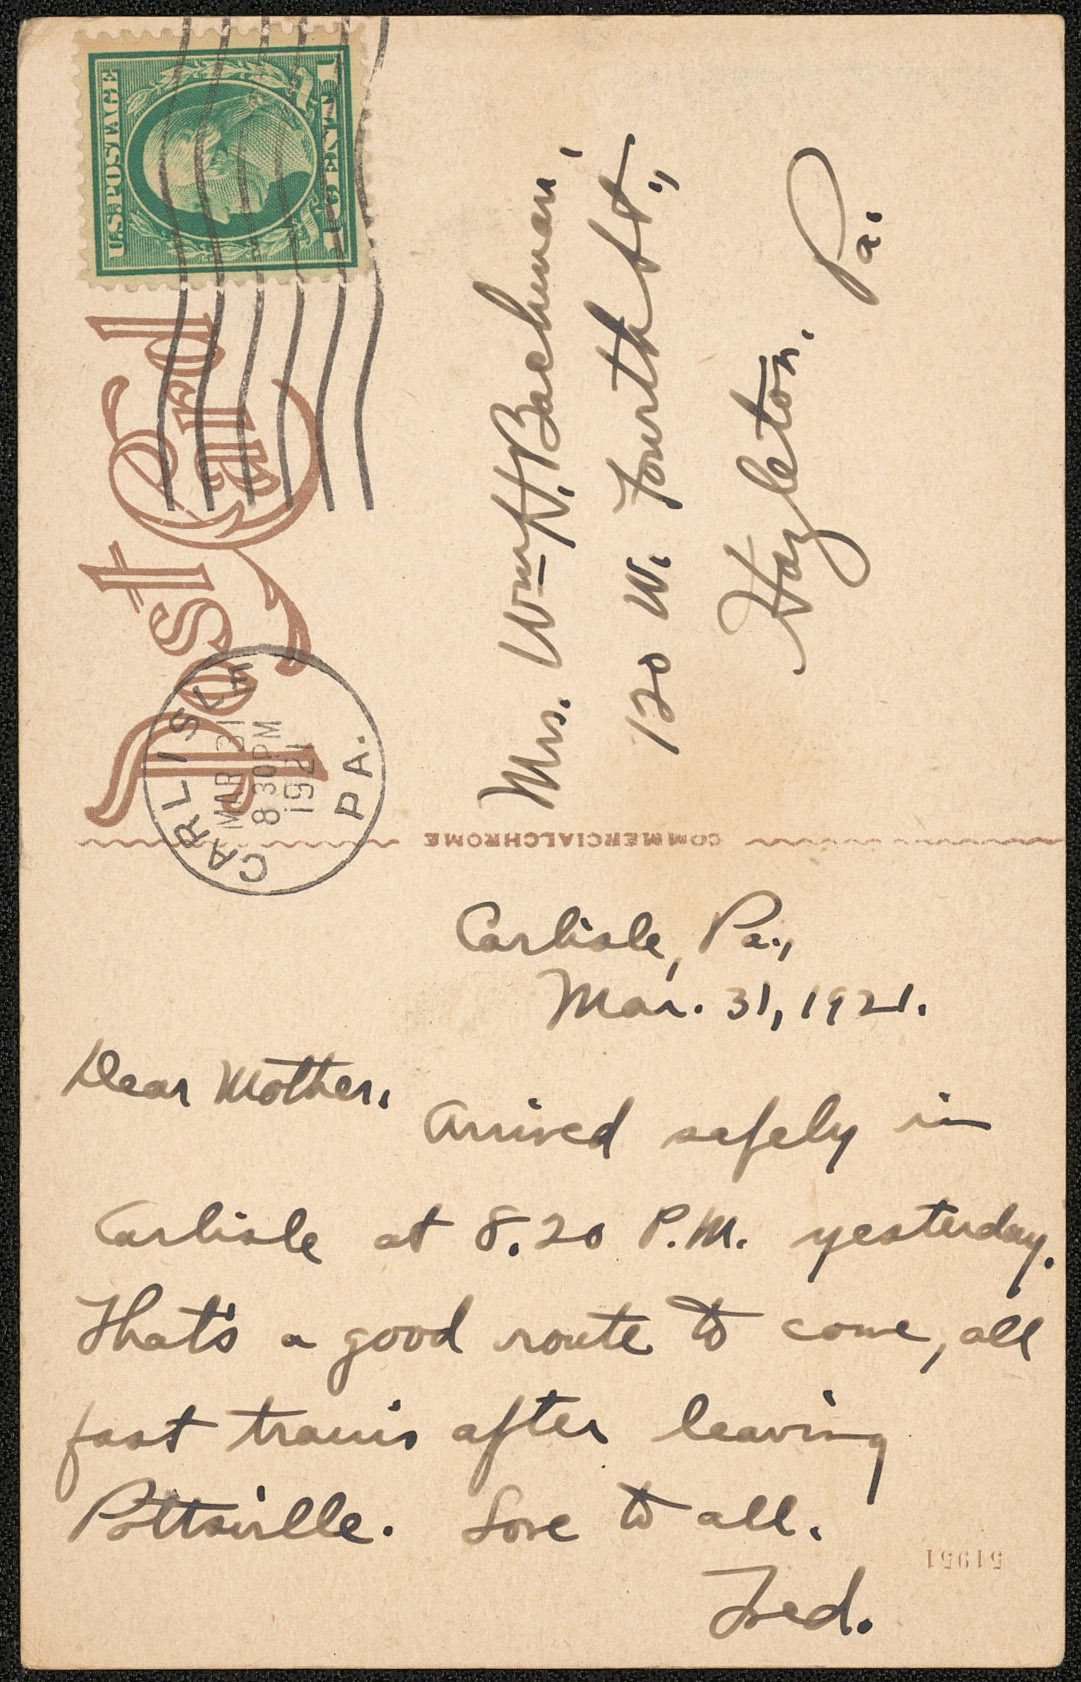 U.S. POSTAGE
1 CENT 1
Post Card
CARLISLE
MAR 31
8 30 PM
1921
PA.
Mrs. Wm H. Bachman,
120 W. Fourth St.,
Hazleton,
Pa.
COMMERCIALCHROME
Carlisle, Pa.,
Mar. 31, 1921.
Dear Mother,
Arrived safely in
Carlisle at 8.20 P.M. yesterday.
That's a good route to come, all
fast trains after leaving
Pottsville. Love to all.
Fred.
51951